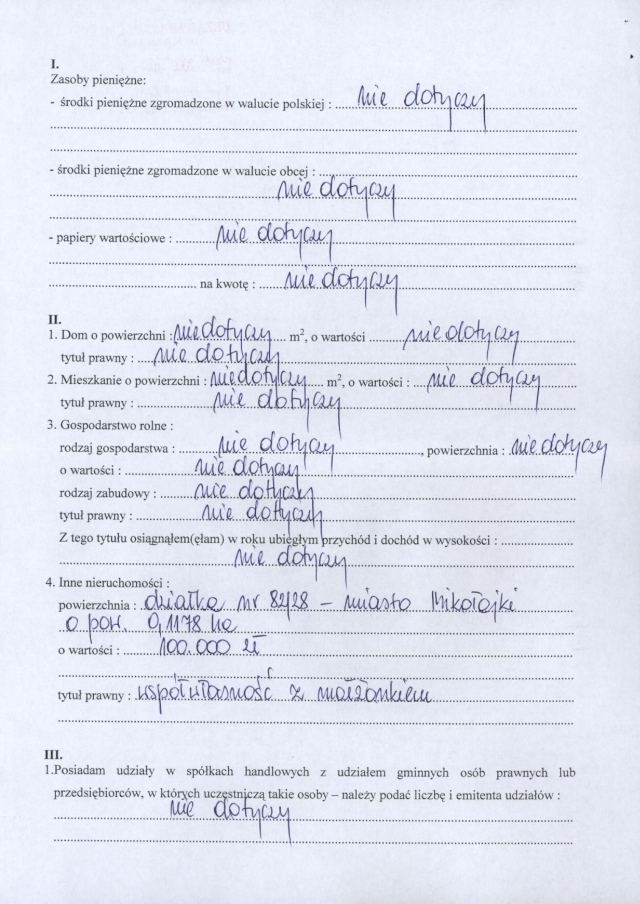 I.
Zasoby pieniężne:
- środki pieniężne zgromadzone w walucie polskiej : nie dotyczy
- środki pieniężne zgromadzone w walucie obcej :
nie dotyczy
- papiery wartościowe : nie dotyczy
na kwotę : nie dotyczy
II.
1. Dom o powierzchni : nie dotyczy m², o wartości nie dotyczy
tytuł prawny : nie dotyczy
2. Mieszkanie o powierzchni : nie dotyczy m², o wartości : nie dotyczy
tytuł prawny : nie dotyczy
3. Gospodarstwo rolne :
rodzaj gospodarstwa : nie dotyczy, powierzchnia : nie dotyczy
o wartości : nie dotyczy
rodzaj zabudowy : nie dotyczy
tytuł prawny : nie dotyczy
Z tego tytułu osiągnąłem(ęłam) w roku ubiegłym przychód i dochód w wysokości :
nie dotyczy
4. Inne nieruchomości :
powierzchnia : działka nr 82/28 – miasto Mikołajki
o pow. 0,1178 ha
o wartości : 100.000 zł
tytuł prawny : współwłasność z małżonkiem
III.
1.Posiadam udziały w spółkach handlowych z udziałem gminnych osób prawnych lub
przedsiębiorców, w których uczestniczą takie osoby – należy podać liczbę i emitenta udziałów :
nie dotyczy